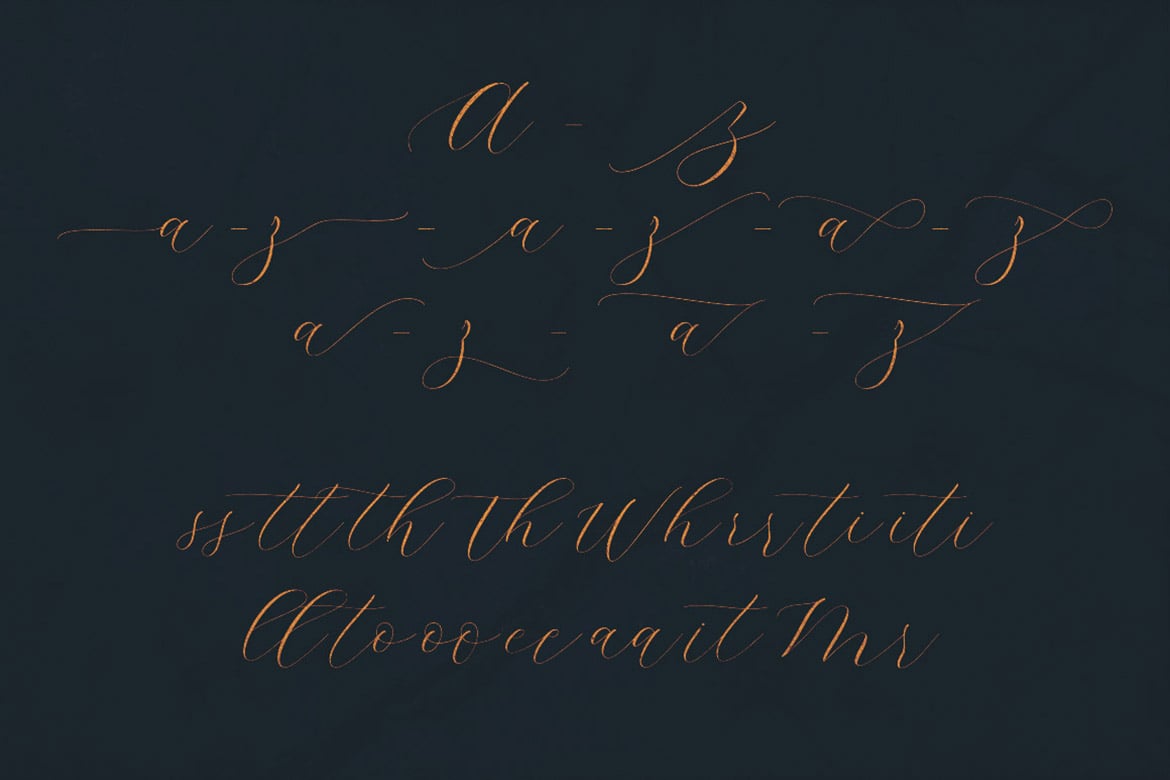 a - z
a - z - a - z - a - z
a - z - a - z
ss tt th Th Wh rs rs ti iti
ll to oo ee aa it Mr